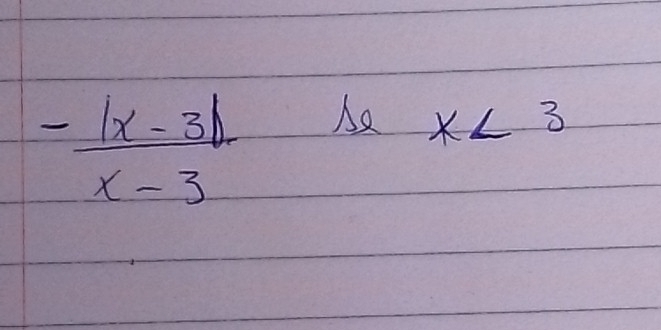 - |x - 3| se x < 3
x - 3